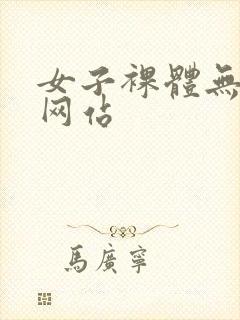 女子裸體無
网佔
馬廣寧